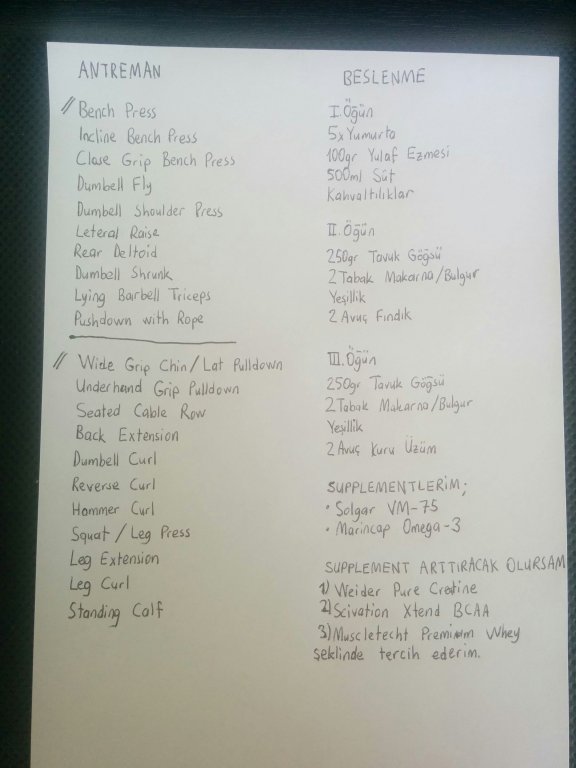 ANTREMAN
// Bench Press
Incline Bench Press
Close Grip Bench Press
Dumbell Fly
Dumbell Shoulder Press
Leteral Raise
Rear Deltoid
Dumbell Shrunk
Lying Barbell Triceps
Pushdown with Rope
// Wide Grip Chin / Lat Pulldown
Underhand Grip Pulldown
Seated Cable Row
Back Extension
Dumbell Curl
Reverse Curl
Hammer Curl
Squat / Leg Press
Leg Extension
Leg Curl
Standing Calf
BESLENME
I. Öğün
5x Yumurta
100gr Yulaf Ezmesi
500ml Süt
Kahvaltılıklar
II. Öğün
250gr Tavuk Göğsü
2 Tabak Makarna/Bulgur
Yeşillik
2 Avuç Fındık
III. Öğün
250gr Tavuk Göğsü
2 Tabak Makarna/Bulgur
Yeşillik
2 Avuç Kuru Üzüm
SUPPLEMENTLERİM;
• Solgar VM-75
• Marincap Omega-3
SUPPLEMENT ARTTIRACAK OLURSAM
1) Weider Pure Creatine
2) Scivation Xtend BCAA
3) Muscletecht Premium Whey
şeklinde tercih ederim.